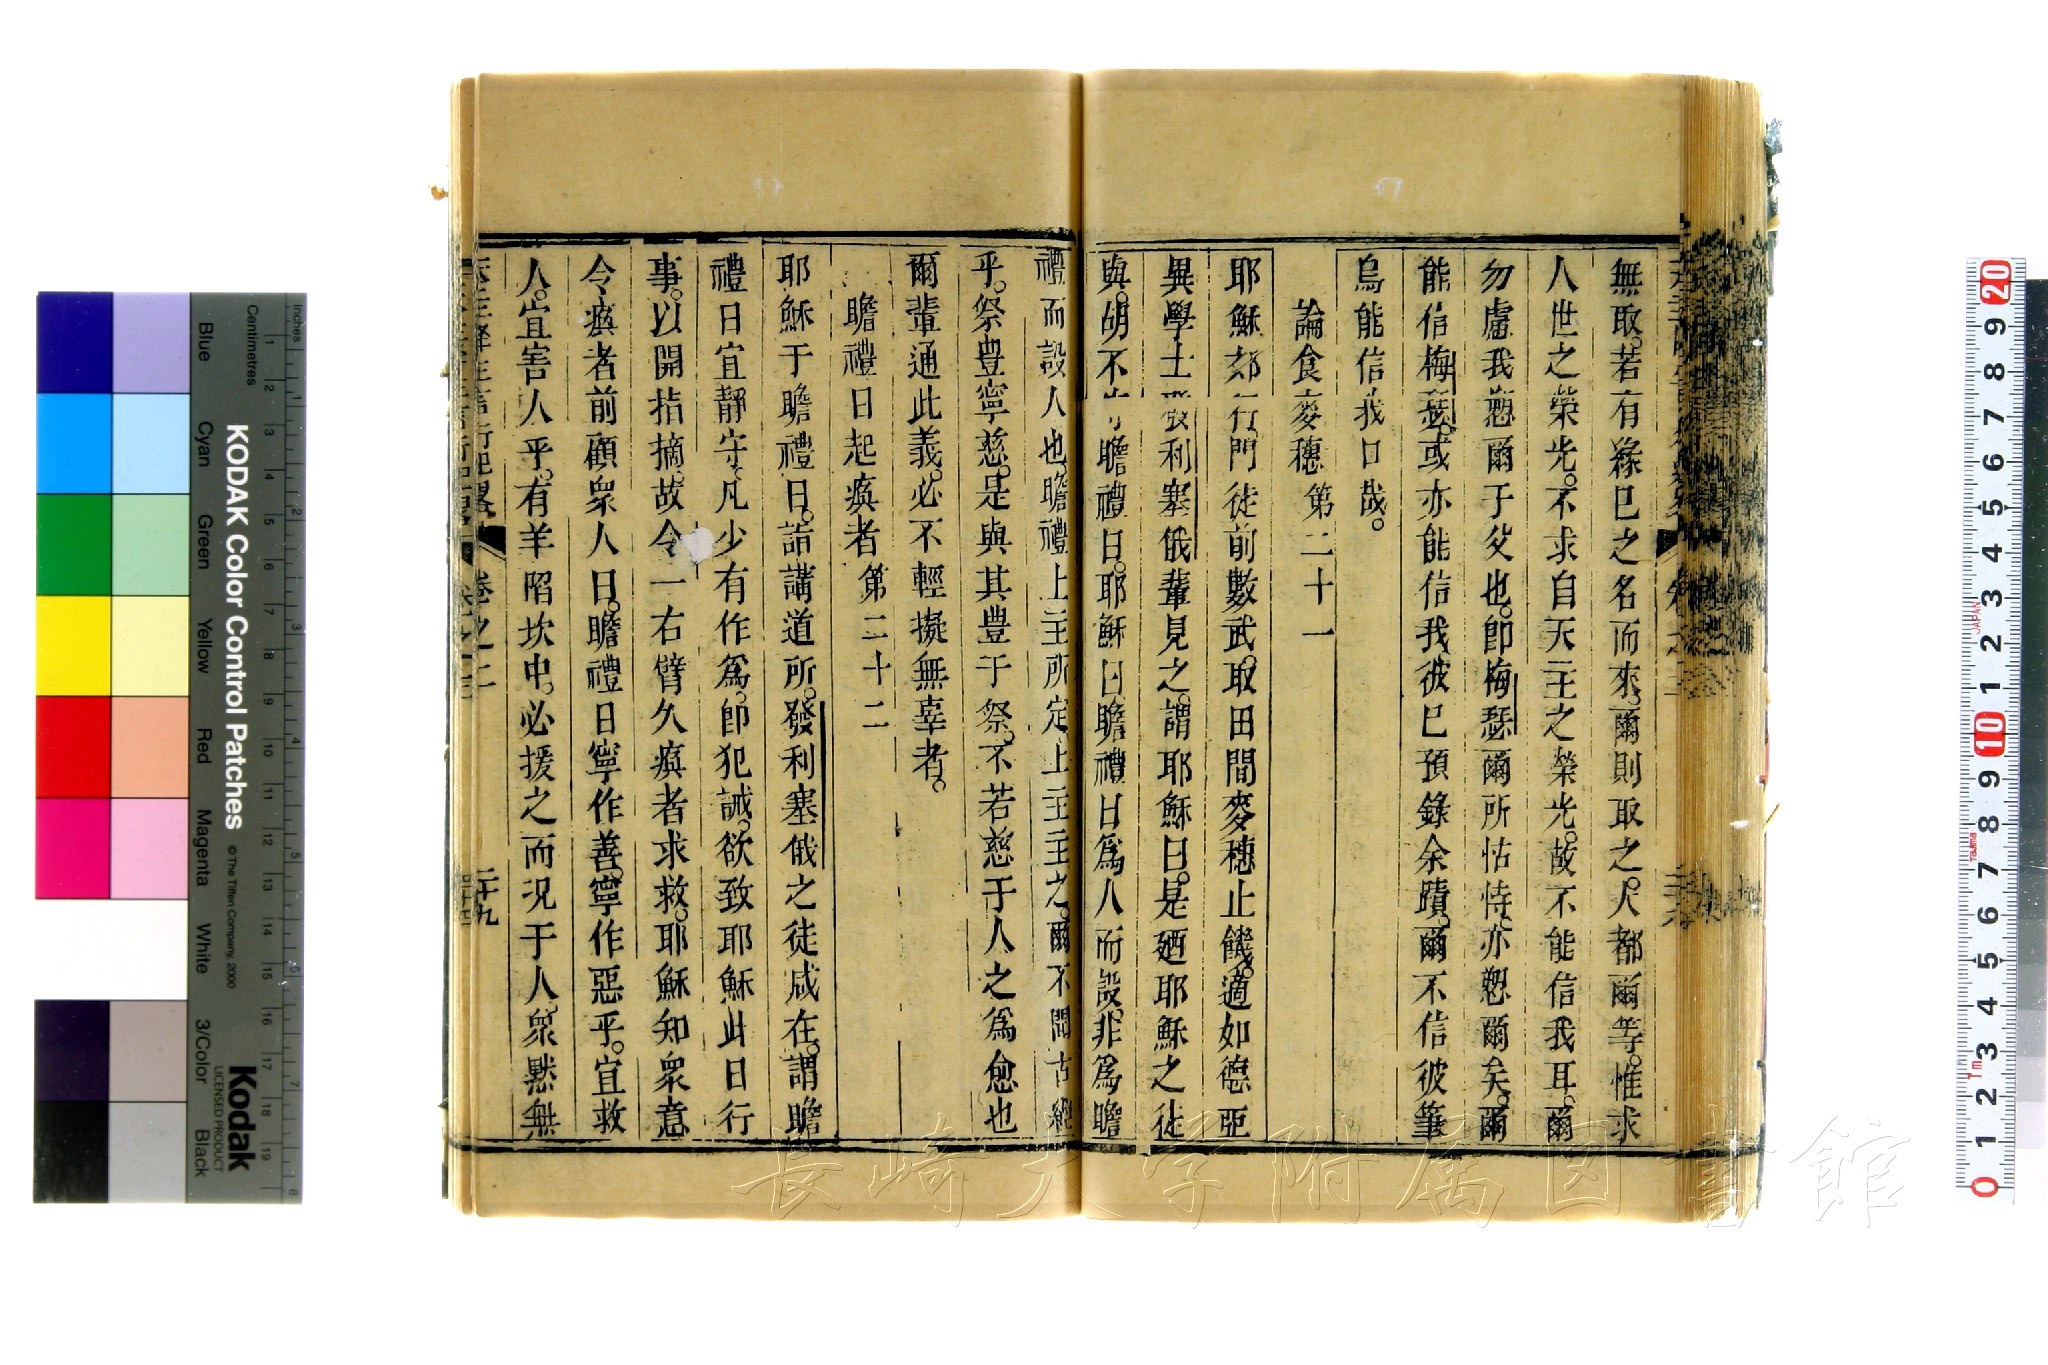 無取。若有緣巳之名而來。爾則取之。人都爾等。惟求
人世之榮光。不求自天主之榮光。故不能信我耳。爾
勿慮我愬爾于父也。卽梅瑟爾所怙恃。亦愬爾矣。爾
能信梅瑟。或亦能信我。彼巳預錄余蹟。爾不信彼筆
烏能信我口哉。
論食麥穗 第二十一
耶穌郊行。門徒前數武。取田間麥穗止饑。適如德亞
異學士發利塞俄輩見之。謂耶穌曰。是廼耶穌之徒
與。胡不守瞻禮日。耶穌曰。瞻禮日為人而設。非為瞻
禮而設人也。瞻禮上主所定。上主主之。爾不聞古經
乎。祭豊寧慈。是與其豊于祭。不若慈于人之為愈也
爾輩通此義。必不輕擬無辜者。
瞻禮日起瘓者 第二十二
耶穌于瞻禮日。詣講道所。發利塞俄之徒咸在。謂瞻
禮日宜靜守。凡少有作為。卽犯誡。欲致耶穌此日行
事。以開指摘。故令一右臂久瘓者求救。耶穌知衆意
令瘓者前顧衆人曰。瞻禮日寧作善。寧作惡乎。宜救
人。宜害人乎。有羊陷坎中。必援之而况于人。衆默無
天主降生言行紀畧 卷之二 二十九
KODAK Color Control Patches
© The Tiffen Company, 2000
Kodak
LICENSED PRODUCT
Inches
Centimetres
Blue Cyan Green Yellow Red Magenta White 3/Color Black
長崎大学附属図書館
JAPAN
Tajima
1m